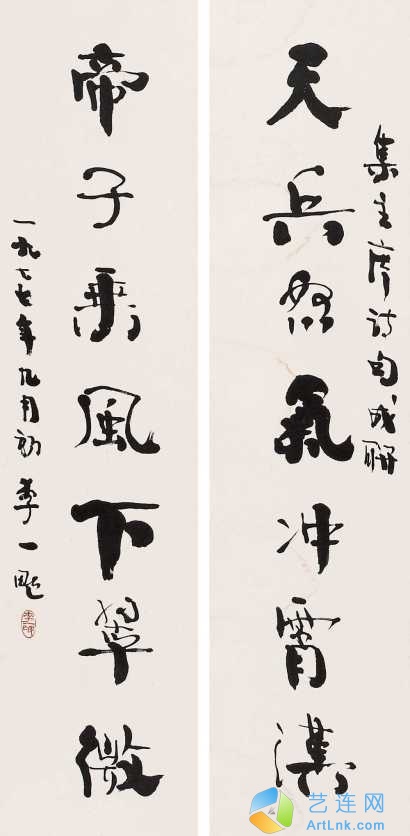 集主席诗句成联
天兵怒氣冲霄漢
帝子乘風下翠微
一九七七年九月初 李一氓
艺连网
ArtLnk.com